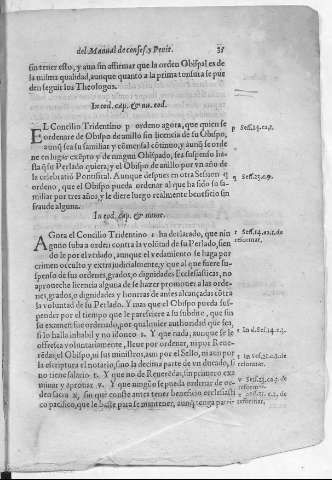 del Manual de confes. y Penit. 35
sin tener esto, y aun sin affirmar que la orden Obispal es de
la misma qualidad, aunque quanto a la prima tonsura se pue
den seguir los Theologos.
In eod. cap. & nu. eod.
EL Concilio Tridentino p ordeno agora, que quien se
ordenare de Obispo de anillo sin licencia de su Obispo,
aunq̃ sea su familiar y comensal cõtinuo, y aunq̃ se orde
ne en lugar exẽpto y de ningun Obispado, sea suspenso has
ta q̃ su Perlado quiera: y el Obispo de anillo por vn año de
la celebraciõ Pontifical. Aunque despues en otra Session q
ordeno, que el Obispo pueda ordenar al que ha sido su fa-
miliar por tres años, y le diere luego realmente beneficio sin
fraude alguna.
p Sess.14.ca.2.
q Sess.23.c.9.
In eod. cap. & nume.
AGora el Concilio Tridentino r ha declarado, que nin
guno suba a orden contra la volũtad de su Perlado, sien
do le por el vedado, aunque el vedamiento se haga por
crimen occulto y extrajudicialmente, y que al que fuere sus-
penso de sus ordenes, grados, o dignidades Ecclesiasticas, no
aproueche licencia alguna de se hazer promouer a las orde-
nes, grados, o dignidades y honrras de antes alcançadas cõtra
la voluntad de su Perlado. Y mas que el Obispo pueda sus-
pender por el tiempo que le paresciere a su subdito, que sin
su examen fue ordenado, por qualquier authoridad que sea,
si lo hallo inhabil y no idoneo s. Y que nada, aunque se le
offrezca voluntariamente, lleue por ordenar, ni por Reue-
rẽdas, el Obispo, ni sus ministros, aun por el Sello, ni aun por
la escriptura el notario, sino la decima parte de vn ducado, si
no tiene salario t. Y que no de Reuerẽdas, sin primero exa
minar y aprouar v. Y que ningũo se pueda ordenar de or-
den sacra x, sin que conste antes tener beneficio ecclesiasti
co pacifico, que le baste para se mantener, aunq̃ tenga patri-
r Sess.14.ca.1. de
reformat.
s In d. Sess.14. c.3.
t In Sess.21.c.1. de
reformat.
v Sess.23.ca.3. de
reformat.
x Sess.21. c.2. de
reformat.